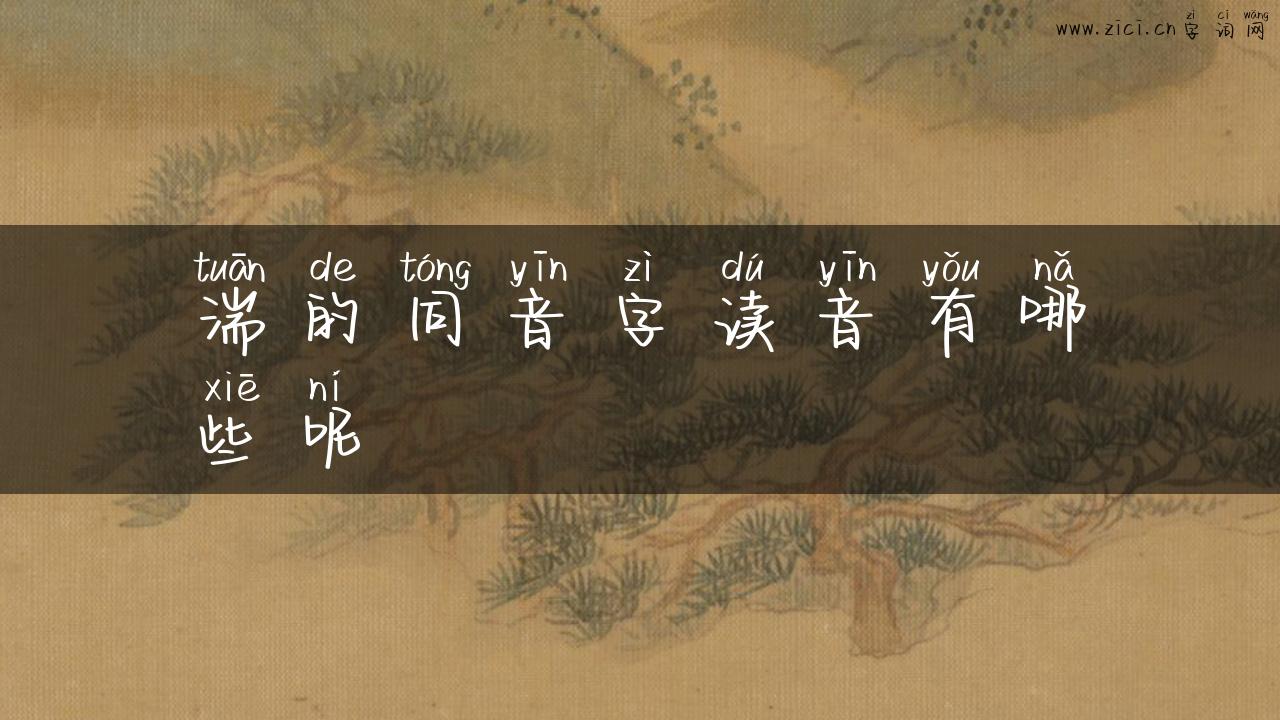 zì cí wǎng
www.zici.cn 字词网
tuān de tóng yīn zì dú yīn yǒu nǎ
湍的同音字读音有哪
xiē ní
些呢